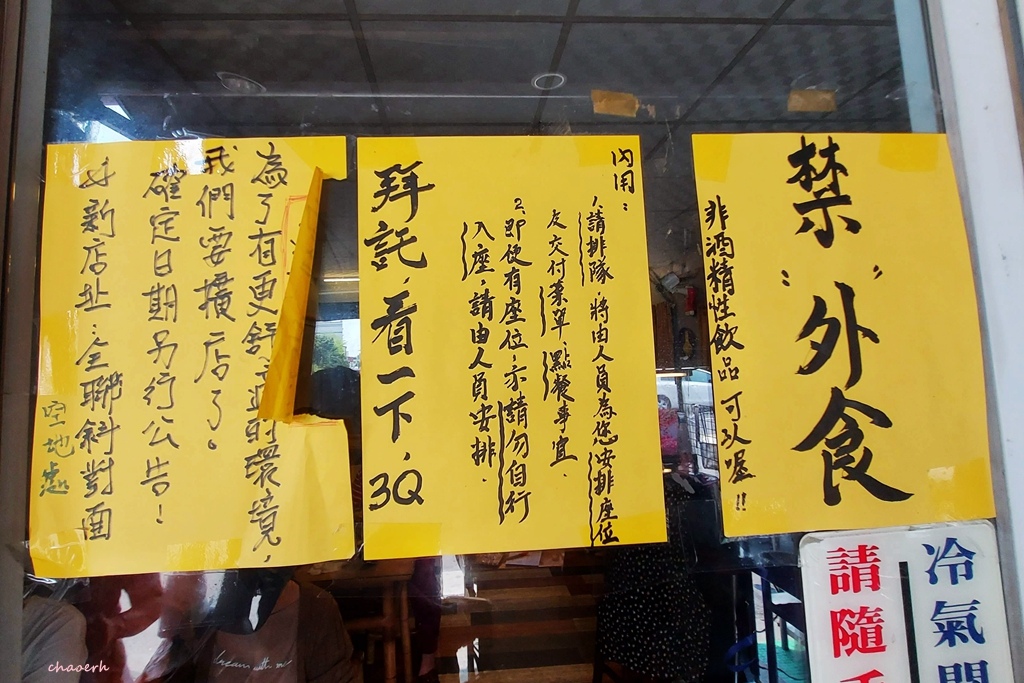 禁"外食"
非酒精性飲品 可以喔!!
內用:
1.請排隊,將由人員為您安排座位
及交付菜單、點餐事宜.
2.即使有座位,亦請勿自行
入座,請由人員安排.
拜託,看一下,3Q
為了有更舒適的環境,
我們要擴店了。
確定日期另行公告!
新店址:全聯斜對面
空地處
冷氣開
請隨手
chaoerh